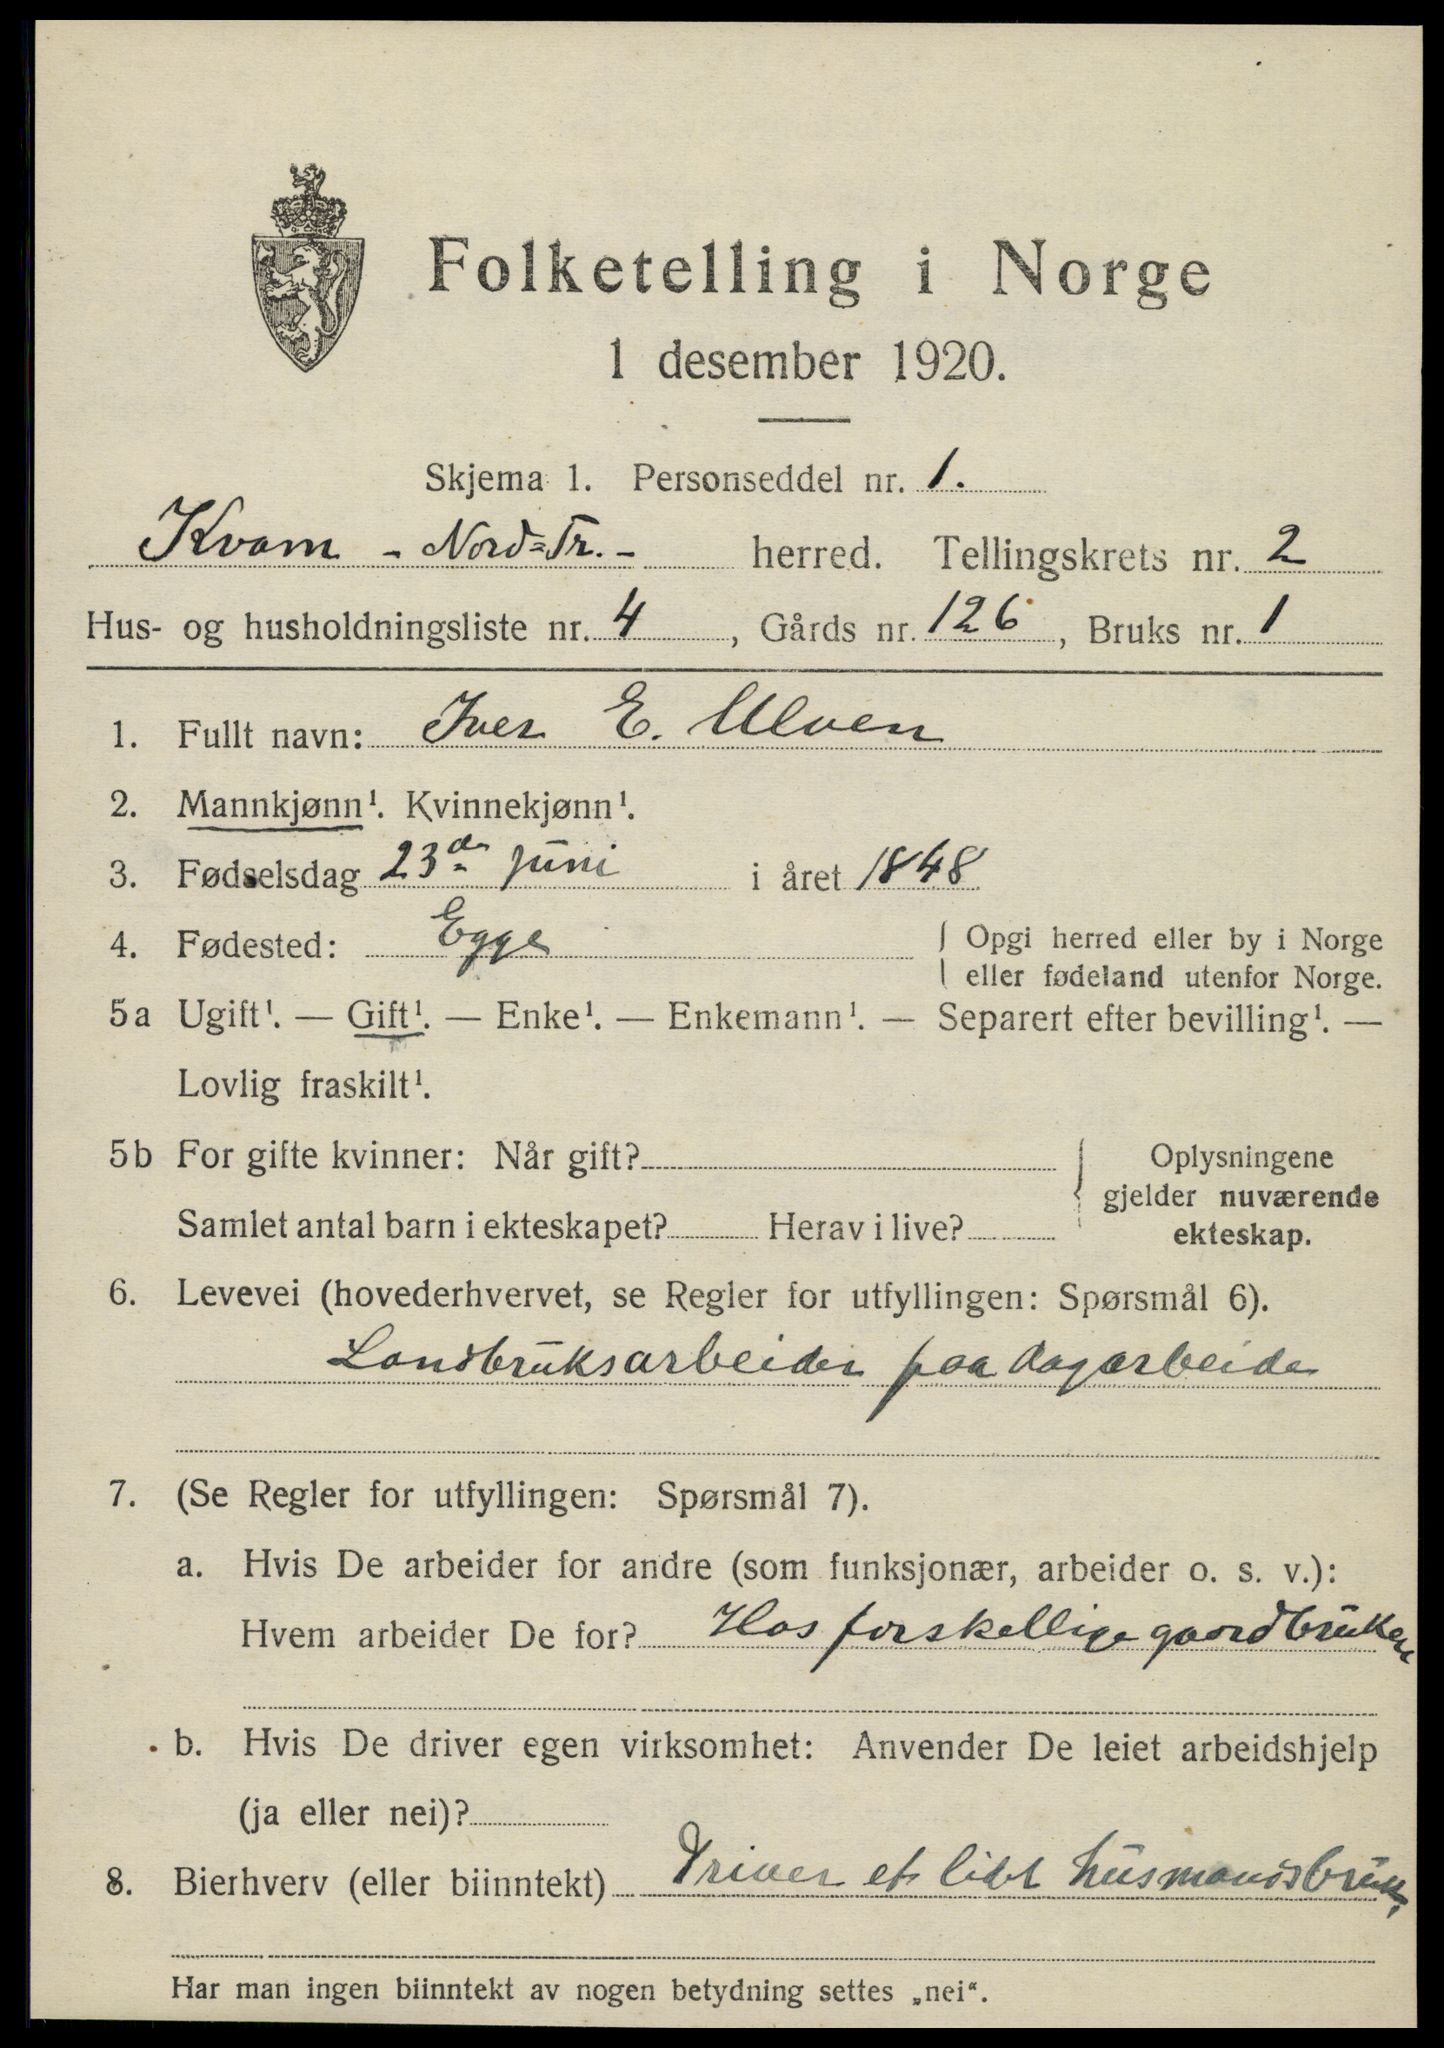 Folketelling i Norge
1 desember 1920.
Skjema 1. Personseddel nr. 1.
Kvam - Nord=Tr. - herred. Tellingskrets nr. 2
Hus- og husholdningsliste nr. 4, Gårds nr. 126, Bruks nr. 1
1. Fullt navn: Iver E. Ulven
2. Mannkjønn¹. Kvinnekjønn¹.
3. Fødselsdag 23de juni i året 1848
4. Fødested: Egge { Opgi herred eller by i Norge
eller fødeland utenfor Norge.
5a Ugift¹. — Gift¹. — Enke¹. — Enkemann¹. — Separert efter bevilling¹. —
Lovlig fraskilt¹.
5b For gifte kvinner: Når gift? Oplysningene
gjelder nuværende
Samlet antal barn i ekteskapet? Herav i live? ekteskap.
6. Levevei (hovederhvervet, se Regler for utfyllingen: Spørsmål 6).
Landbruksarbeider paa dagarbeide
7. (Se Regler for utfyllingen: Spørsmål 7).
a. Hvis De arbeider for andre (som funksjonær, arbeider o. s. v.):
Hvem arbeider De for? Hos forskellige gaardbruker
b. Hvis De driver egen virksomhet: Anvender De leiet arbeidshjelp
(ja eller nei)?
8. Bierhverv (eller biinntekt) Driver et lidt husmandsbruk,
Har man ingen biinntekt av nogen betydning settes „nei“.